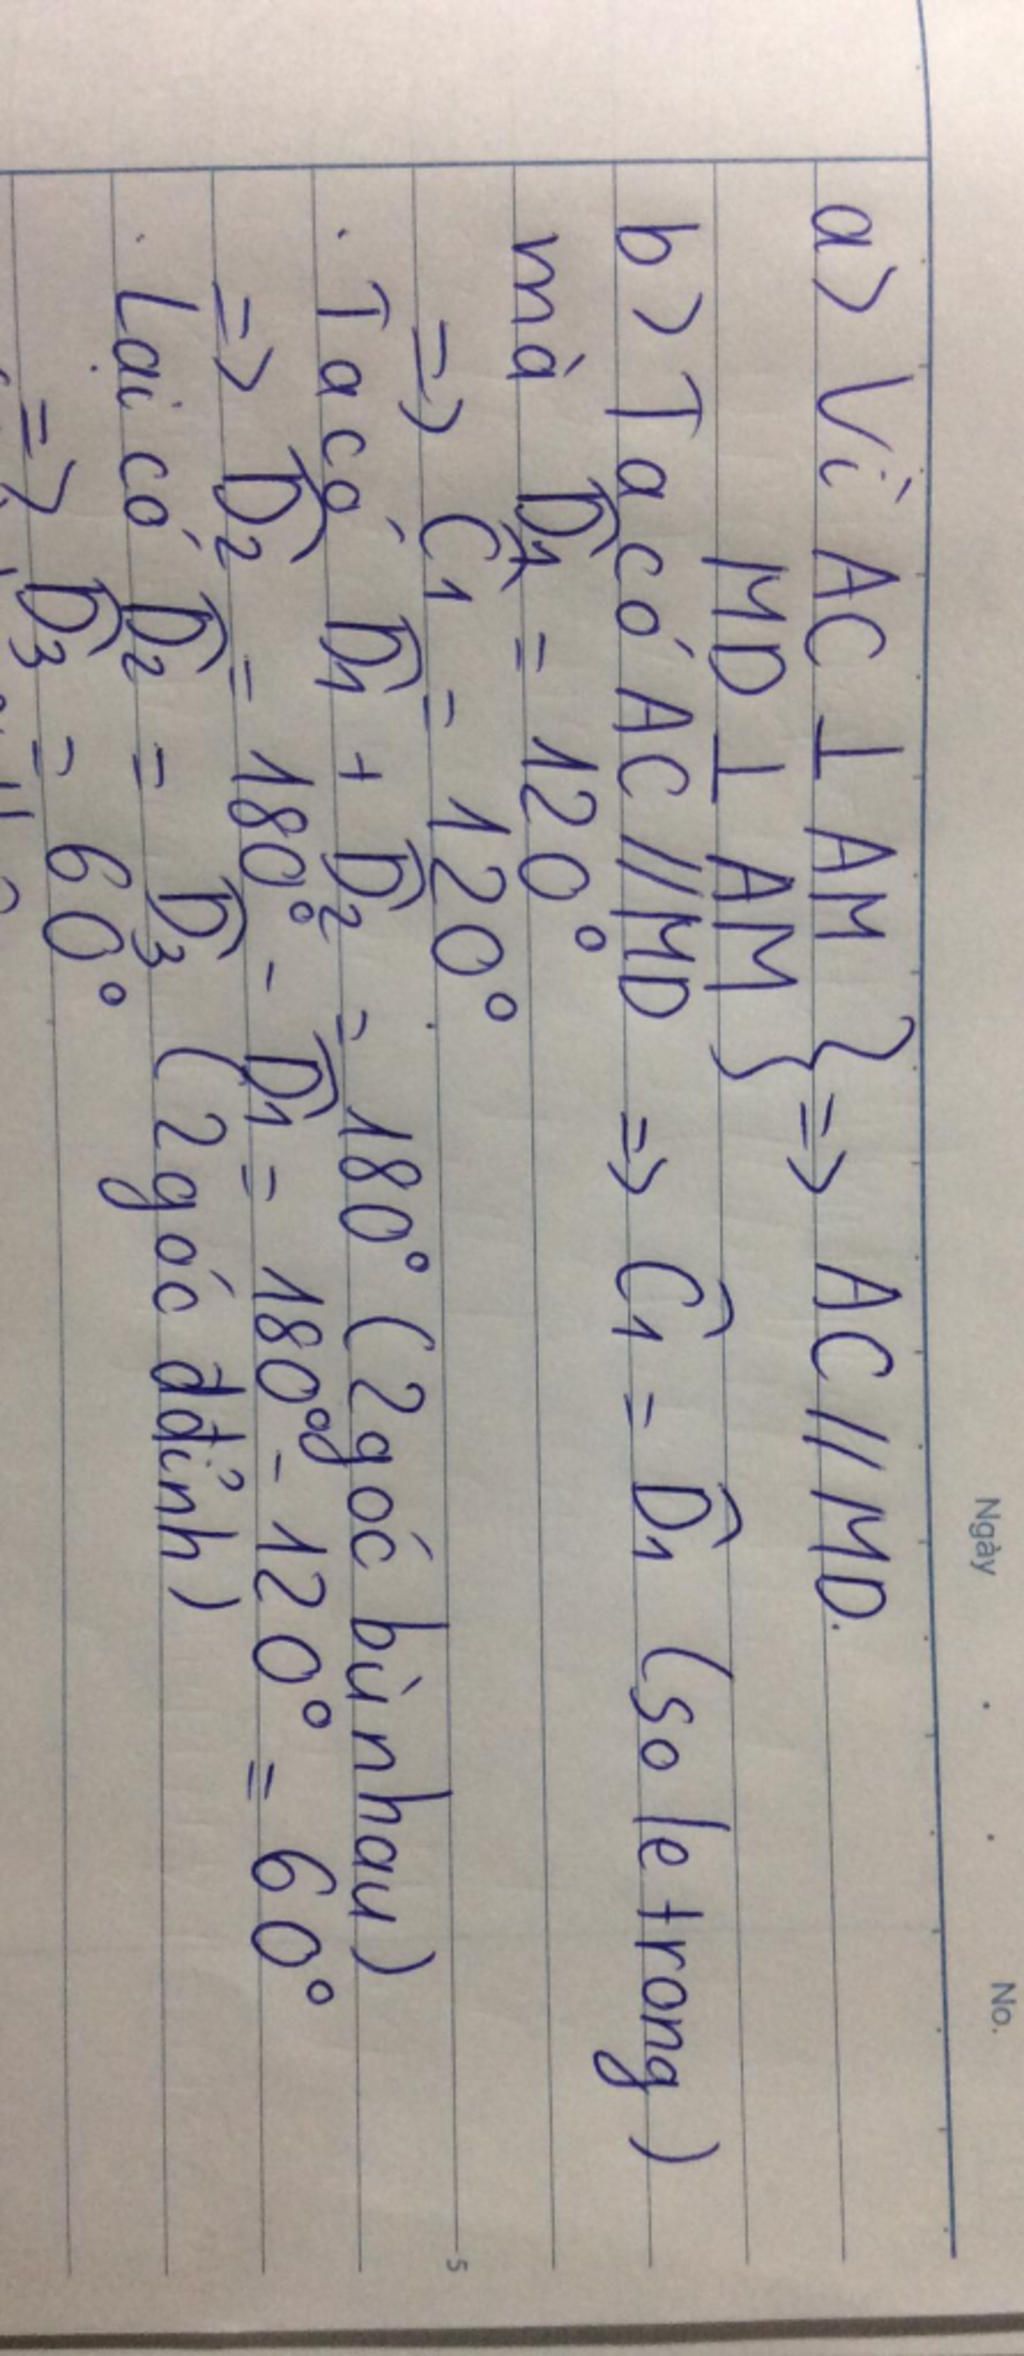 Ngày No.
a> Vì AC ⊥ AM
MD ⊥ AM } => AC // MD.
b> Ta có AC // MD => Ĉ1 = D̂1 (so le trong)
mà D̂1 = 120°
=> Ĉ1 = 120°
5
. Ta có D̂1 + D̂2 = 180° (2 góc bù nhau)
=> D̂2 = 180° - D̂1 = 180° - 120° = 60°
. Lại có D̂2 = D̂3 (2 góc đđỉnh)
=> D̂3 = 60°